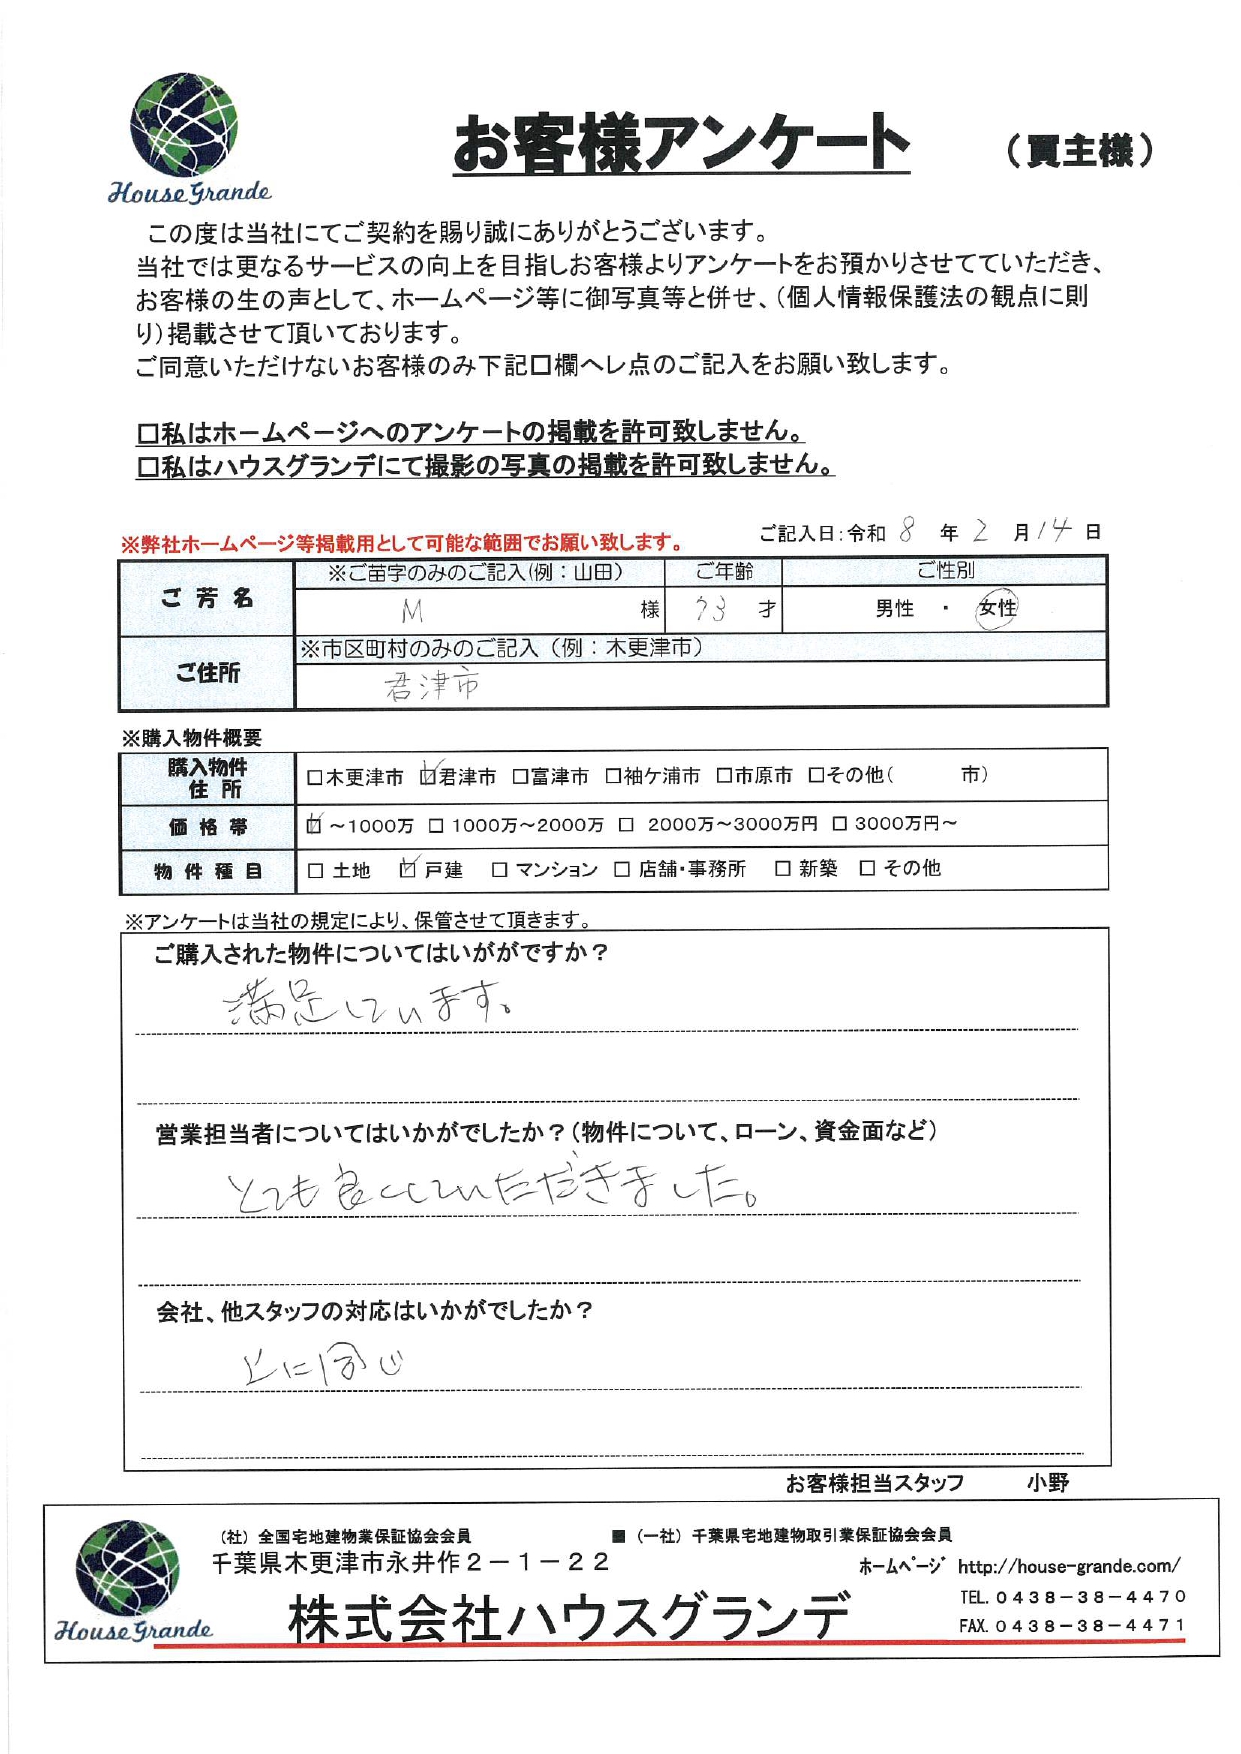 House Grande
お客様アンケート （買主様）
この度は当社にてご契約を賜り誠にありがとうございます。
当社では更なるサービスの向上を目指しお客様よりアンケートをお預かりさせてていただき、
お客様の生の声として、ホームページ等に御写真等と併せ、（個人情報保護法の観点に則
り）掲載させて頂いております。
ご同意いただけないお客様のみ下記口欄へレ点のご記入をお願い致します。
□私はホームページへのアンケートの掲載を許可致しません。
□私はハウスグランデにて撮影の写真の掲載を許可致しません。
ご記入日：令和 8 年 2 月 14 日
※弊社ホームページ等掲載用として可能な範囲でお願い致します。
ご芳名 ※ご苗字のみのご記入（例：山田） ご年齢 ご性別
M 様 73 才 男性 ・ 女性
ご住所 ※市区町村のみのご記入（例：木更津市）
君津市
※購入物件概要
購入物件住所 □木更津市 ☑君津市 □富津市 □袖ケ浦市 □市原市 □その他（ 市）
価格帯 ☑～1000万 □ 1000万～2000万 □ 2000万～3000万円 □ 3000万円～
物件種目 □ 土地 ☑ 戸建 □ マンション □ 店舗・事務所 □ 新築 □ その他
※アンケートは当社の規定により、保管させて頂きます。
ご購入された物件についてはいががですか？
満足しています。
営業担当者についてはいかがでしたか？（物件について、ローン、資金面など）
とても良くしていただきました。
会社、他スタッフの対応はいかがでしたか？
上に同じ
お客様担当スタッフ 小野
（社）全国宅地建物業保証協会会員 ■（一社）千葉県宅地建物取引業保証協会会員
千葉県木更津市永井作２－１－２２ ホームページ http://house-grande.com/
株式会社ハウスグランデ
TEL. 0438-38-4470
FAX. 0438-38-4471
House Grande